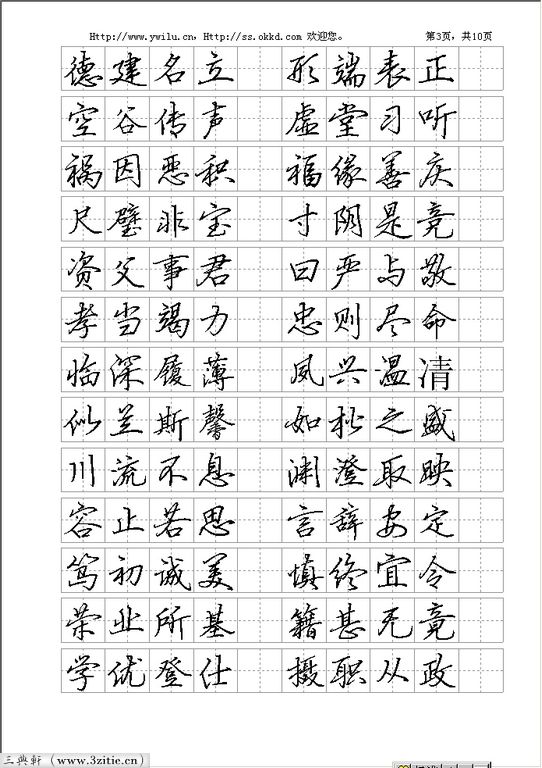 Http://www.ywilu.cn, Http://ss.okkd.com 欢迎您。 第3页, 共10页
德建名立 形端表正
空谷传声 虚堂习听
祸因恶积 福缘善庆
尺璧非宝 寸阴是竞
资父事君 曰严与敬
孝当竭力 忠则尽命
临深履薄 夙兴温清
似兰斯馨 如松之盛
川流不息 渊澄取映
容止若思 言辞安定
笃初诚美 慎终宜令
荣业所基 籍甚无竟
学优登仕 摄职从政
三典轩 (www.3zitie.cn)